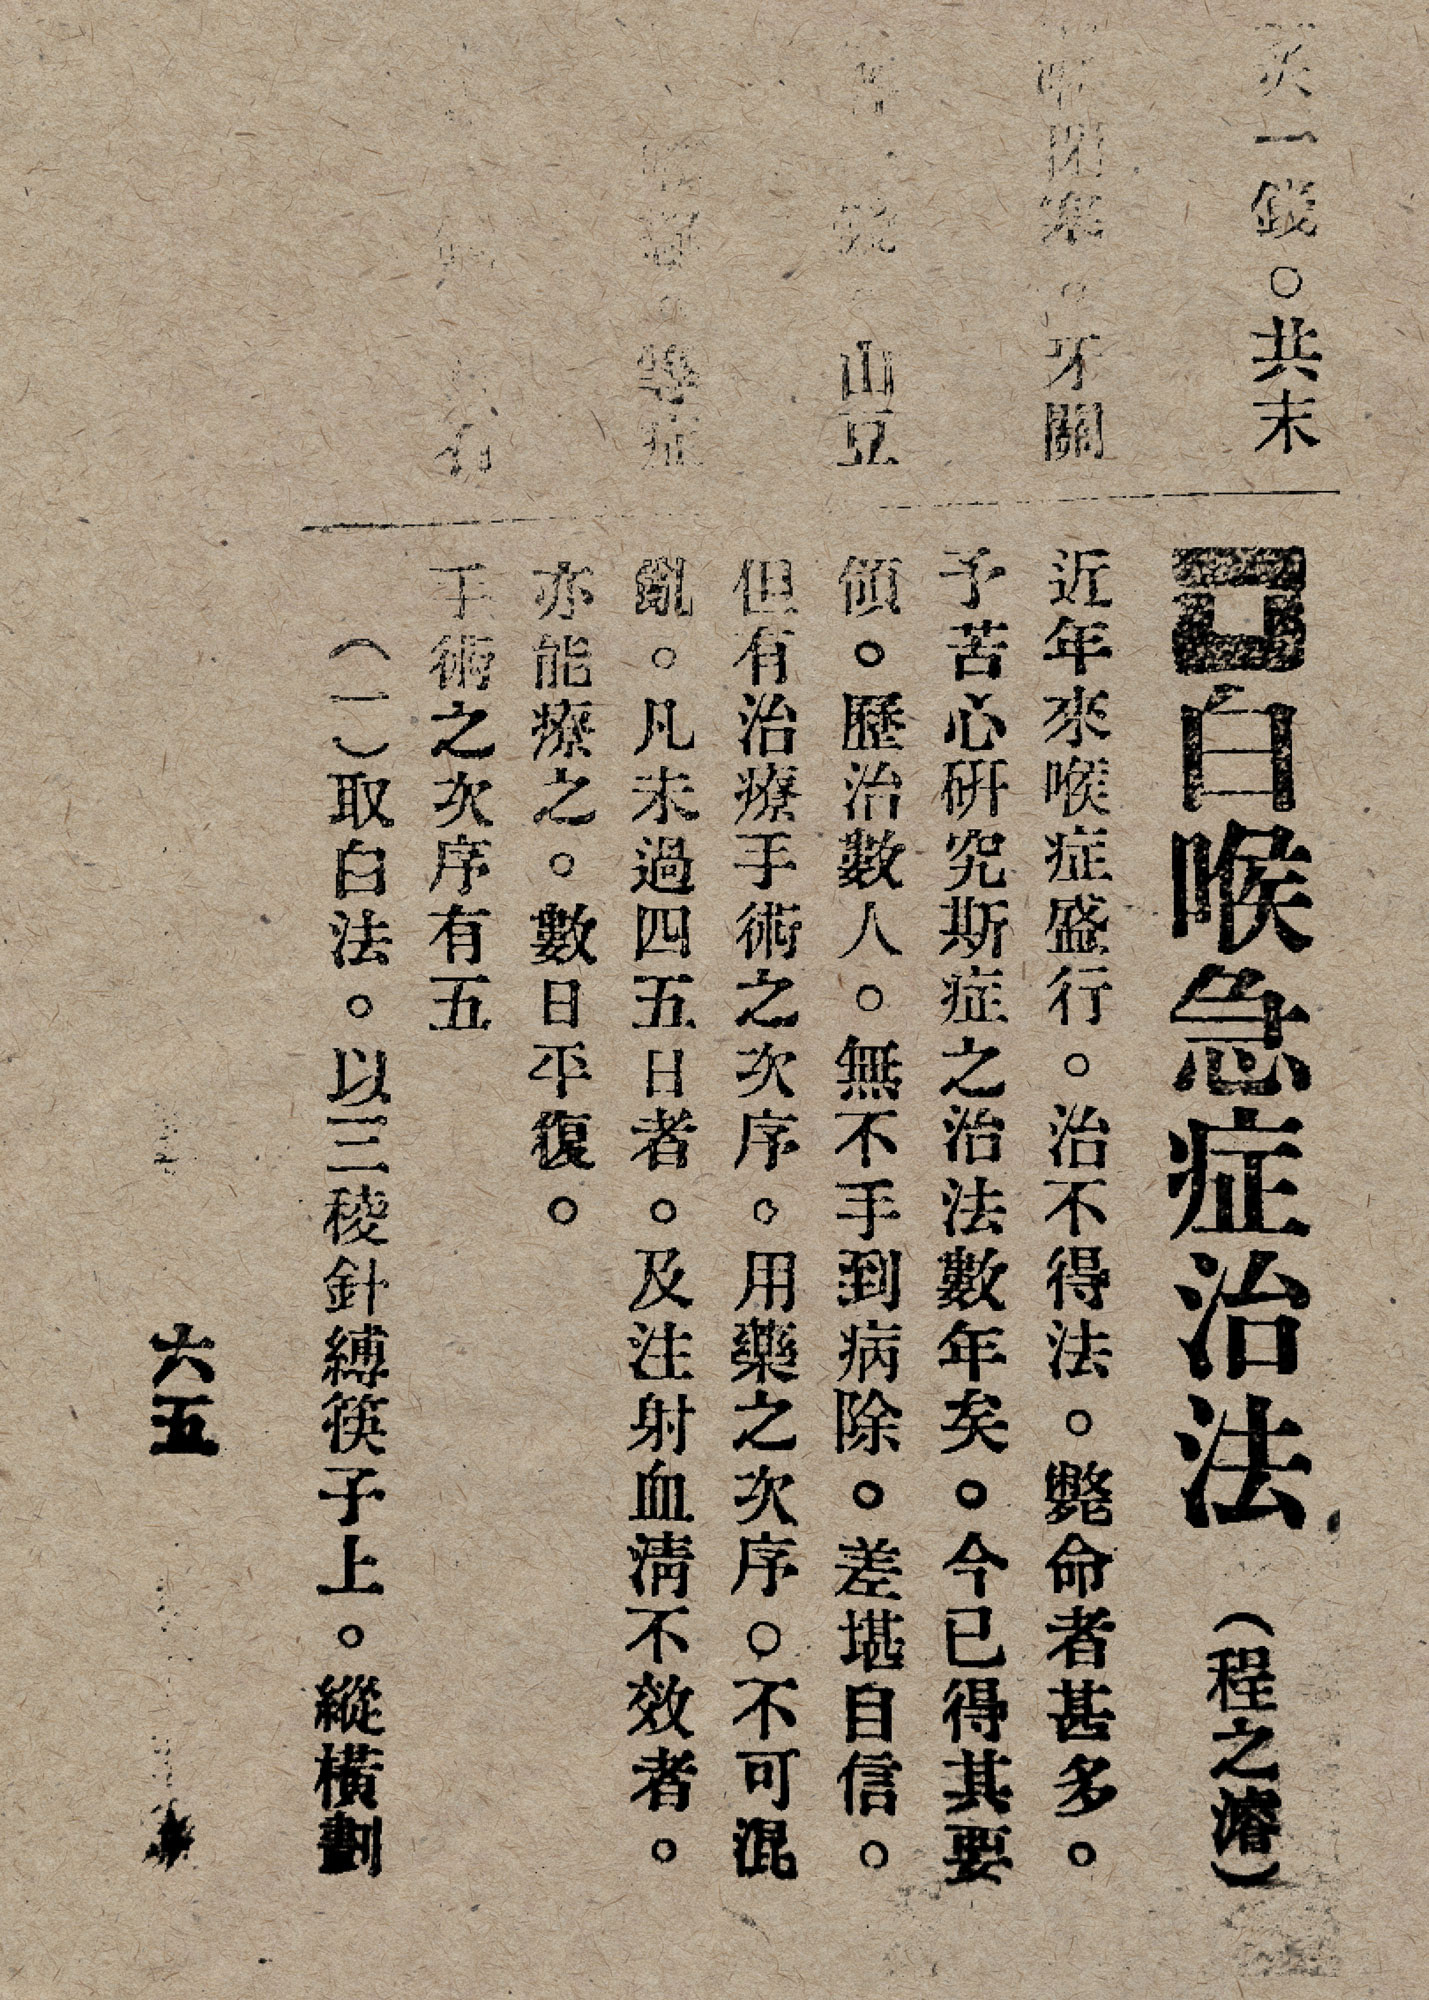 一錢。共末
閉塞
牙關
山豆
等症
石
白喉急症治法　（程之濬）
近年來喉症盛行。治不得法。斃命者甚多。
予苦心研究斯症之治法數年矣。今已得其要
領。歷治數人。無不手到病除。差堪自信。
但有治療手術之次序。用藥之次序。不可混
亂。凡未過四五日者。及注射血清不效者。
亦能療之。數日平復。
手術之次序有五
（一）取白法。以三稜針縛筷子上。縱橫劃
六五